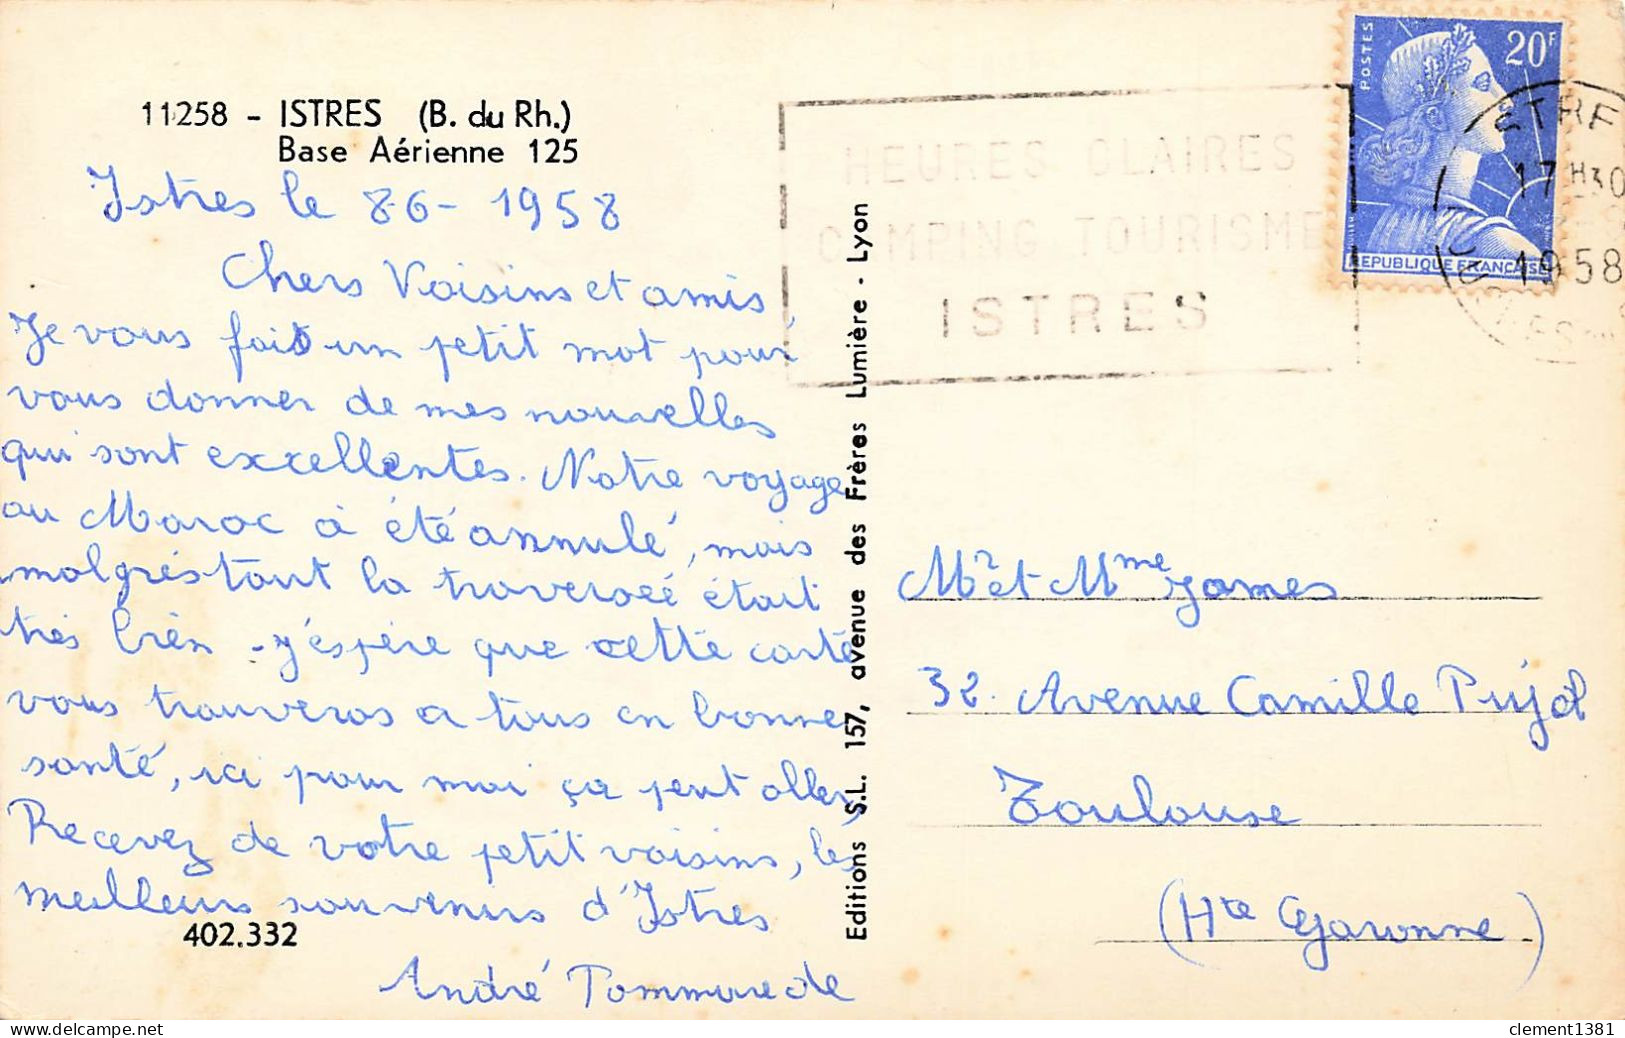 11258 - ISTRES (B. du Rh.)
Base Aérienne 125
Istres le 8-6- 1958
Chers Voisins et amis,
Je vous fais un petit mot pour
vous donner de mes nouvelles
qui sont excellentes. Notre voyage
au Maroc à été annulé, mais
malgrés tout la traverséé était
très bien - j'éspére que cette carte
vous trouveras a tous en bonne
santé, ici pour moi ça peut aller,
Recevez de votre petit voisins, les
meilleurs souvenirs d'Istres
402.332
André
Editions S.L. 157, avenue des Frères Lumière - Lyon
HEURES CLAIRES
CAMPING TOURISME
ISTRES
POSTES
20F
REPUBLIQUE FRANCAISE
17H30
1958
Mr et Mme James
32. Avenue Camille Pujol
Toulouse
(Hte Garonne)
clement1381